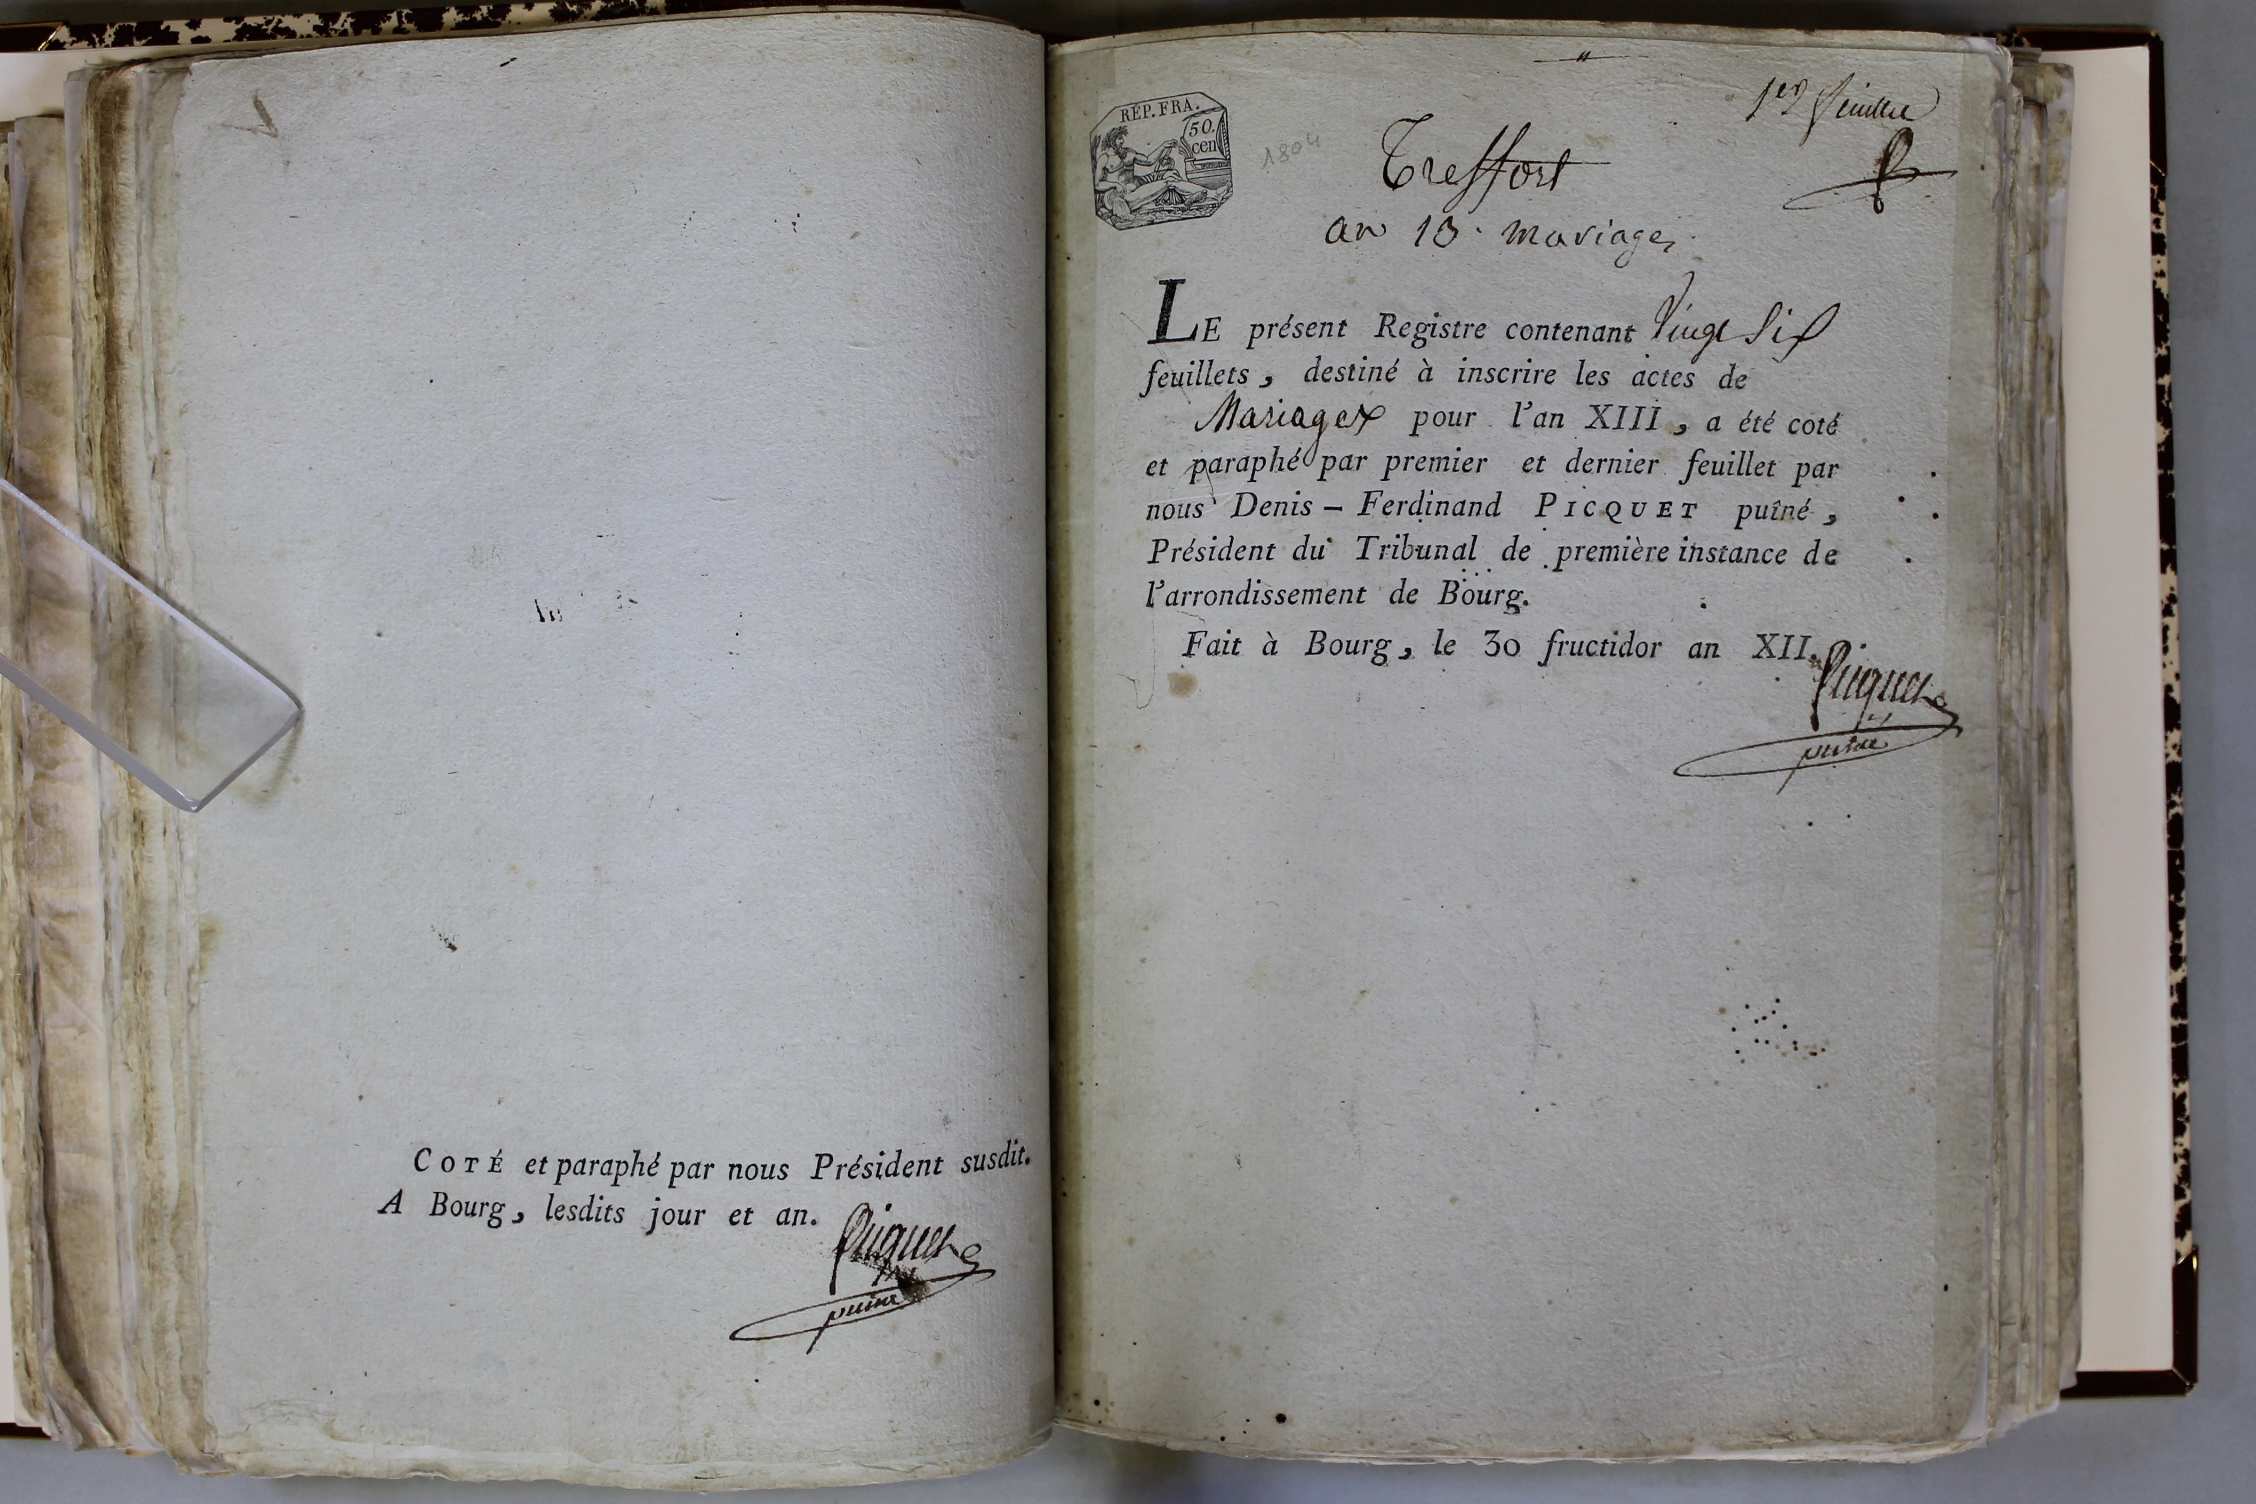 COTÉ et paraphé par nous Président susdit.
A Bourg, lesdits jour et an.
Picquet
puîné
RÉP. FRA.
50.
cen
1804
1er feuillet
Treffort
an 13. mariages
LE présent Registre contenant Vingt Six
feuillets, destiné à inscrire les actes de
Mariages pour l'an XIII, a été coté
et paraphé par premier et dernier feuillet par
nous Denis – Ferdinand PICQUET puîné,
Président du Tribunal de première instance de
l'arrondissement de Bourg.
Fait à Bourg, le 30 fructidor an XII.
Picquet
puîné